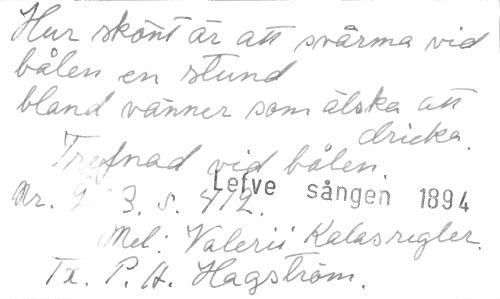 Hur skönt är att svärma vid
bålen en stund
bland vänner som älska att
dricka.
Trefnad vid bålen.
Nr. 3. s. 412.
Lefve sången 1894
Mel: Valerii Kalasregler.
Tx. P. H. Hagström.